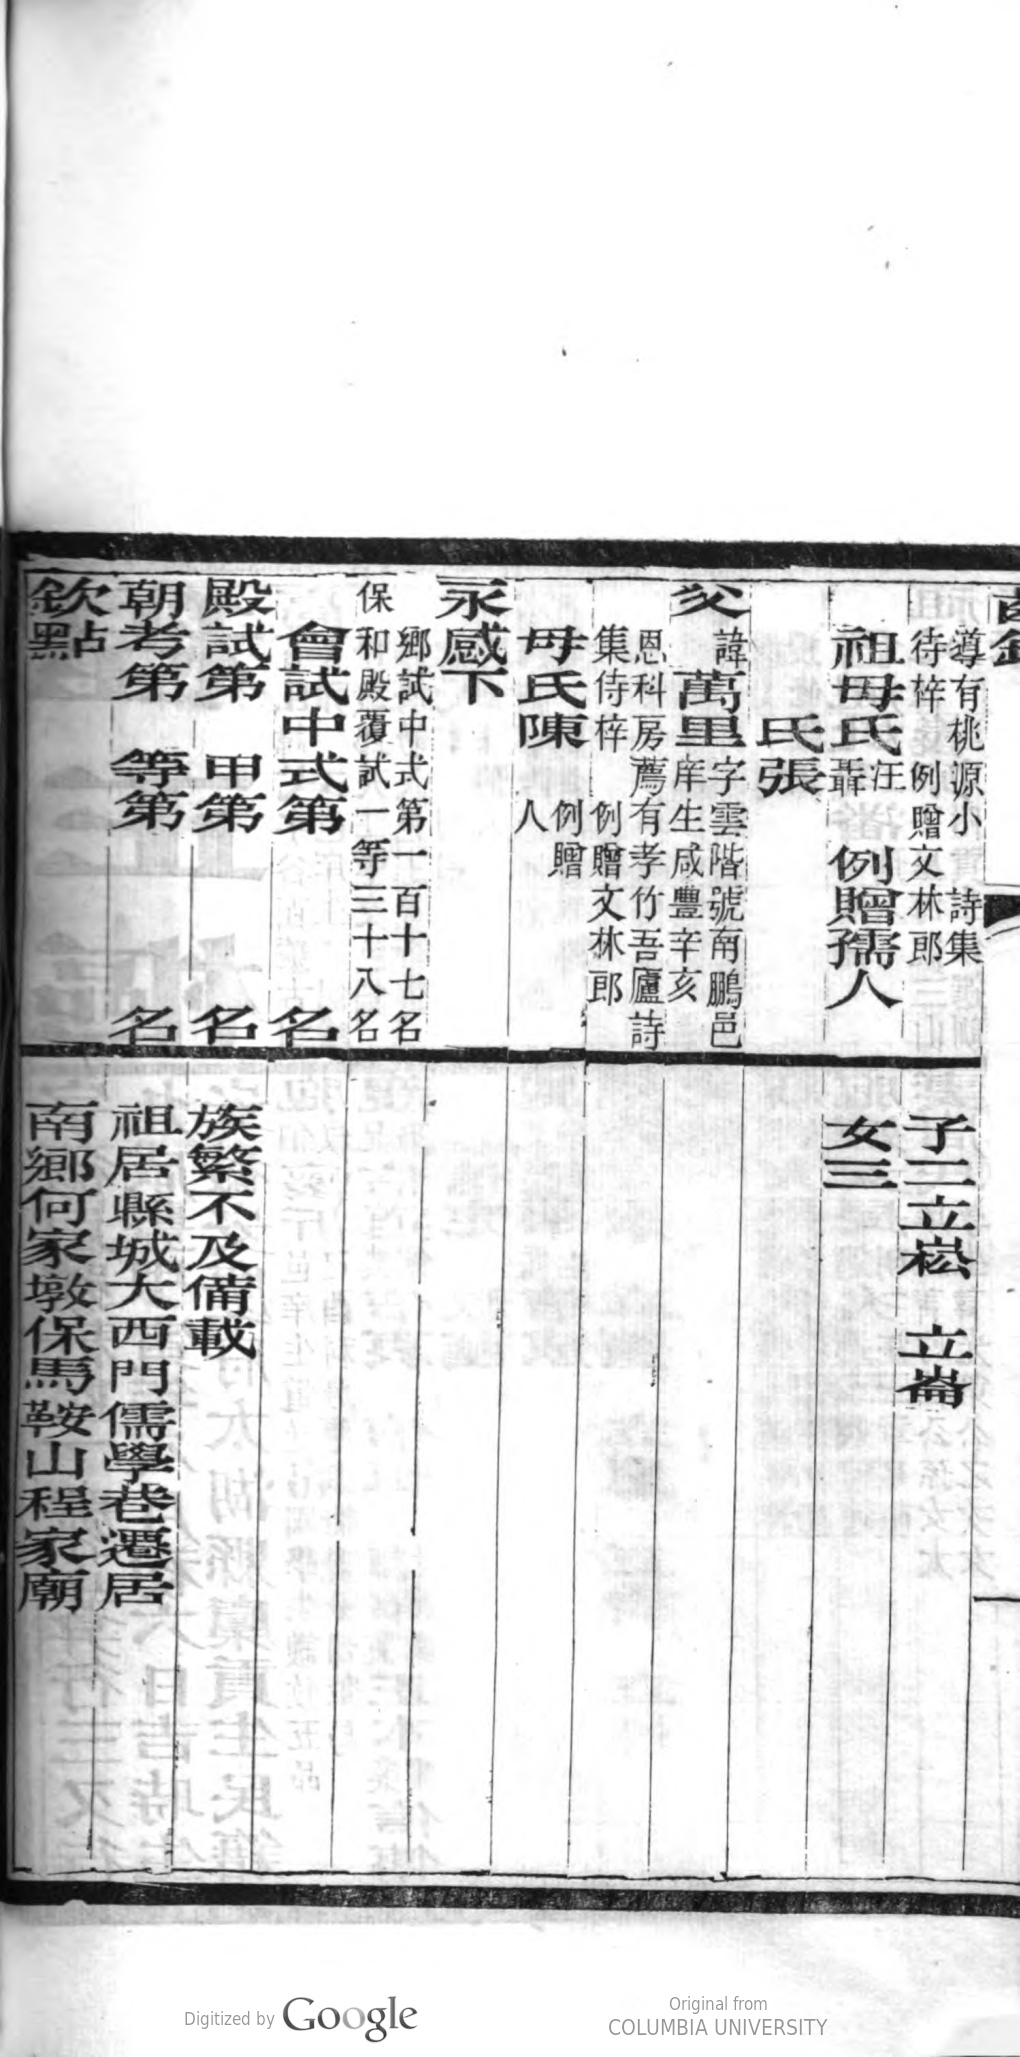 齒錄
導有桃源小 詩集
待梓例贈文林郎
祖母氏汪聶 例贈孺人
氏張
父諱萬里字雲階號南鵬邑
庠生咸豐辛亥
恩科房薦有孝竹吾廬詩
集待梓 例贈文林郎
母氏陳 例贈
人
永感下
鄉試中式第一百十七名
保和殿覆試一等三十八名
會試中式第 名
殿試第 甲第 名
朝考第 等第 名
欽點
子二立崧 立崙
女三
族繁不及備載
祖居縣城大西門儒學巷遷居
南鄉何家墩保馬鞍山程家廟
Digitized by Google
Original from
COLUMBIA UNIVERSITY